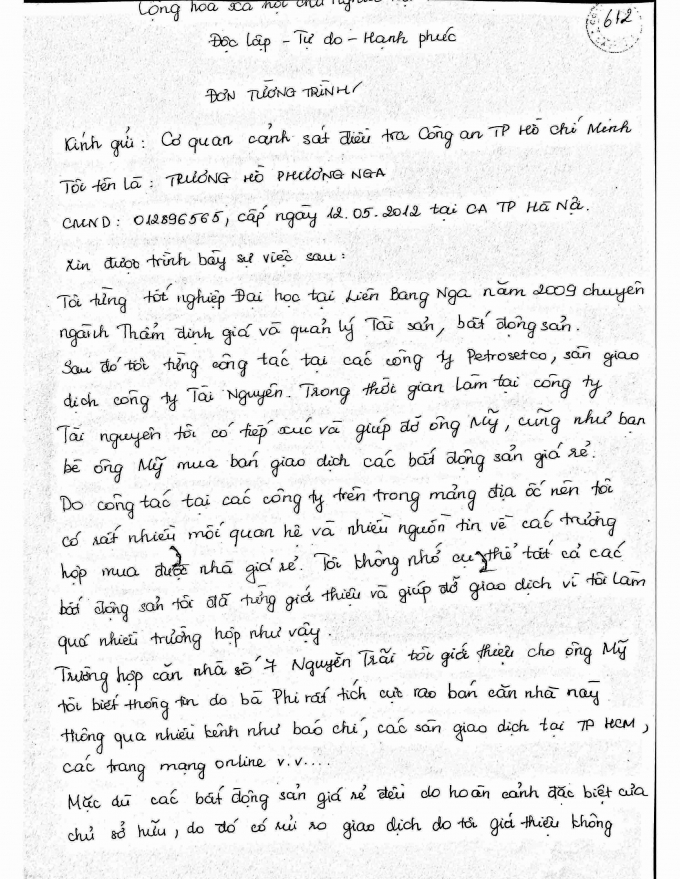 Cộng hòa xã hội chủ nghĩa
612
Độc lập - Tự do - Hạnh phúc
ĐƠN TƯỜNG TRÌNH
Kính gửi : Cơ quan cảnh sát điều tra Công an TP Hồ Chí Minh
Tôi tên là : TRƯƠNG HỒ PHƯƠNG NGA
CMND : 012896565, cấp ngày 12.05.2012 tại CA TP Hà Nội.
Xin được trình bày sự việc sau :
Tôi từng tốt nghiệp Đại học tại Liên Bang Nga năm 2009 chuyên
ngành Thẩm định giá và quản lý Tài sản, bất động sản.
Sau đó tôi từng công tác tại các công ty Petrosetco, sàn giao
dịch công ty Tài Nguyên. Trong thời gian làm tại công ty
Tài nguyên tôi có tiếp xúc và giúp đỡ ông Mỹ, cũng như bạn
bè ông Mỹ mua bán giao dịch các bất động sản giá rẻ.
Do công tác tại các công ty trên trong mảng địa ốc nên tôi
có rất nhiều mối quan hệ và nhiều nguồn tin về các trường
hợp mua được nhà giá rẻ. Tôi không nhớ cụ thể tất cả các
bất động sản tôi đã từng giới thiệu và giúp đỡ giao dịch vì tôi làm
quá nhiều trường hợp như vậy.
Trường hợp căn nhà số 7 Nguyễn Trãi tôi giới thiệu cho ông Mỹ
tôi biết thông tin do bà Phi rất tích cực rao bán căn nhà này
thông qua nhiều kênh như báo chí, các sàn giao dịch tại TP HCM,
các trang mạng online v.v....
Mặc dù các bất động sản giá rẻ đều do hoàn cảnh đặc biệt của
chủ sở hữu, do đó có rủi ro giao dịch do tôi giới thiệu không